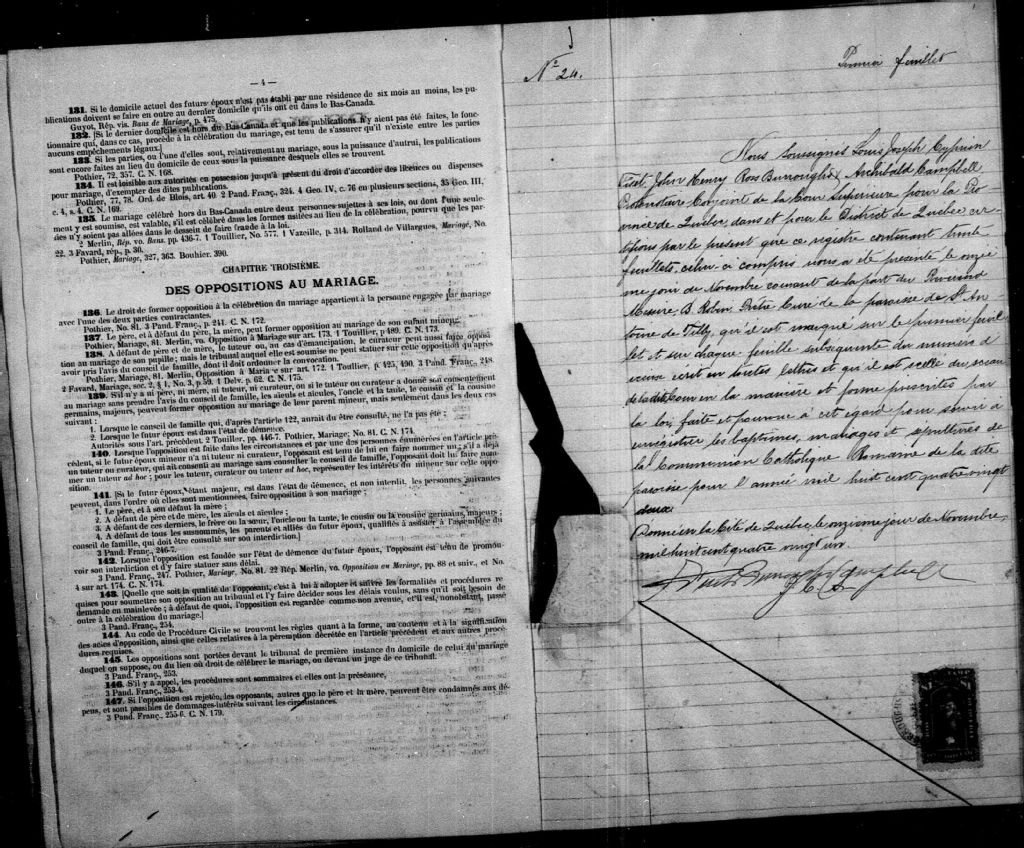 — 4 —
131. Si le domicile actuel des futurs époux n'est pas établi par une résidence de six mois au moins, les pu-
blications doivent se faire en outre au dernier domicile qu'ils ont eu dans le Bas-Canada.
Guyot, Rép. vis. Bans de Mariage, p. 475.
132. [Si le dernier domicile est hors du Bas-Canada et que les publications n'y aient pas été faites, le fonc-
tionnaire qui, dans ce cas, procède à la célébration du mariage, est tenu de s'assurer qu'il n'existe entre les parties
aucuns empêchements légaux.]
133. Si les parties, ou l'une d'elles sont, relativement au mariage, sous la puissance d'autrui, les publications
sont encore faites au lieu du domicile de ceux sous la puissance desquels elles se trouvent.
Pothier, 72, 357. C. N. 168.
134. Il est loisible aux autorités en possession jusqu'à présent du droit d'accorder des licences ou dispenses
pour mariage, d'exempter des dites publications.
Pothier, 77, 78. Ord. de Blois, art. 40. 2 Pand. Franç., 324. 4 Geo. IV, c. 76 en plusieurs sections, 35 Geo. III,
c. 4, s. 4. C. N. 169.
135. Le mariage célébré hors du Bas-Canada entre deux personnes sujettes à ses lois, ou dont l'une seule-
ment y est soumise, est valable, s'il est célébré dans les formes usitées au lieu de la célébration, pourvu que les par-
ties n'y soient pas allées dans le dessein de faire fraude à la loi.
2 Merlin, Rép. vo. Bans. pp. 436-7. 1 Touillier, No. 577. 1 Vazeille, p. 314. Rolland de Villargues, Mariage, No.
22. 3 Favard, rép., p. 30.
Pothier, Mariage, 327, 363. Bouhier. 390.
CHAPITRE TROISIÈME.
DES OPPOSITIONS AU MARIAGE.
136. Le droit de former opposition à la célébrêtion du mariage appartient à la personne engagée par mariage
avec l'une des deux parties contractantes.
Pothier, No. 81. 3 Pand. Franç., p. 241. C. N. 172.
137. Le père, et à défaut du père, la mère, peut former opposition au mariage de son enfant mineur.
Pothier, Mariage, 81. Merlin, vo. Opposition à Mariage sur art. 173, 1 Touillier, p. 489. C. N. 173.
138. A défaut de père et de mère, le tuteur ou, au cas d'émancipation, le curateur peut aussi faire opposi-
tion au mariage de son pupille; mais le tribunal auquel elle est soumise ne peut statuer sur cette opposition qu'après
avoir pris l'avis du conseil de famille, dont il doit ordonner la convocation.
Pothier, Mariage, 81. Merlin, Opposition à Mariage sur art. 172. 1 Touillier, p. 425, 490. 3 Pand. Franç., 248.
2 Favard, Mariage, soc. 2, § 1, No. 3, p. 59. 1 Delv. p. 62. C. N. 175.
139. S'il n'y a ni père, ni mère, ni tuteur, ni curateur, ou si le tuteur ou curateur a donné son consentement
au mariage sans prendre l'avis du conseil de famille, les aïeuls et aïeules, l'oncle et la tante, le cousin et la cousine
germains, majeurs, peuvent former opposition au mariage de leur parent mineur, mais seulement dans les deux cas
suivant :
1. Lorsque le conseil de famille qui, d'après l'article 122, aurait du être consulté, ne l'a pas été ;
2. Lorsque le futur époux est dans l'état de démence.
Autorités sous l'art. précédent. 2 Touiller, pp. 446-7. Pothier, Mariage; No. 81. C. N. 174.
140. Lorsque l'opposition est faite dans les circonstances et par une des personnes énumérées en l'article pré-
cédent, si le futur époux mineur n'a ni tuteur ni curateur, l'opposant est tenu de lui en faire nommer un ; s'il a déjà
un tuteur ou curateur, qui ait consenti au mariage sans consulter le conseil de famille, l'opposant doit lui faire nom-
mer un tuteur ad hoc ; pour les, tuteur, curateur ou tuteur ad hoc, représenter les intérêts du mineur sur cette oppo-
sition.
141. [Si le futur époux, étant majeur, est dans l'état de démence, et non interdit, les personnes suivantes
peuvent, dans l'ordre où elles sont mentionnées, faire opposition à son mariage ;
1. Le père, et à son défaut la mère ;
2. A défaut de père et de mère, les aïeuls et aïeules ;
3. A défaut de ces derniers, le frère ou la sœur, l'oncle ou la tante, le cousin ou la cousine germains, majeurs ;
4. A défaut de tous les susnommés, les parents et alliés du futur époux, qualifiés à assister à l'assemblée du
conseil de famille, qui doit être consulté sur son interdiction.]
3 Pand. Franç., 246-7.
142. Lorsque l'opposition est fondée sur l'état de démence du futur époux, l'opposant est tenu de promou-
voir son interdiction et d'y faire statuer sans délai.
3 Pand. Franç., 247. Pothier, Mariage, No. 81. 22 Rép. Merlin, vo. Opposition en Mariage, pp. 88 et suiv., et No.
4 sur art. 174. C. N. 174.
143. [Quelle que soit la qualité de l'opposant, c'est à lui à adopter et suivre les formalités et procédures re-
quises pour soumettre son opposition au tribunal et l'y faire décider sous les délais voulus, sans qu'il soit besoin de
demande en mainlevée ; à défaut de quoi, l'opposition est regardée comme non-avenue, et il est, nonobstant, passé
outre à la célébration du mariage.]
3 Pand. Franç., 254.
144. Au code de Procédure Civile se trouvent les règles quant à la forme, au contenu et à la signification
des actes d'opposition, ainsi que celles relatives à la péremption décrétée en l'article précédent et aux autres procé-
dures requises.
145. Les oppositions sont portées devant le tribunal de première instance du domicile de celui au mariage
duquel on suppose, ou du lieu où droit de célébrer le mariage, ou devant un juge de ce tribunal.
3 Pand. Franç., 253.
146. S'il y a appel, les procédures sont sommaires et elles ont la préséance,
3 Pand. Franç., 253-4.
147. Si l'opposition est rejetée, les opposants, autres que le père et la mère, peuvent être condamnés aux dé-
pens, et sont passibles de dommages-intérêts suivant les circonstances.
3 Pand. Franç., 255-6. C. N. 179.
No 24.
Premier feuillet
Nous Soussignés Louis Joseph Cyprien
Fiset, John Henry Ross Burroughs & Archibald Campbell
Protonotaire Conjoint de la Cour Supérieure pour la Pro
vince de Québec, dans et pour le District de Québec cer
tifions par le présent que ce registre contenant trente
feuillets, celui-ci compris nous a été présenté le onzie
me jour de Novembre courant de la part du Révérend
Messire, B. Robin Prêtre Curé de la paroisse de St An
toine de Tilly, qu'il est marqué sur le premier feuil
let et sur chaque feuille subséquente du numéro d'
icence écrit en toutes lettres et qu'il est scellé du sceau
de la dite Cour en la manière et forme prescrites par
la loi, faite et pourvue à cet égard pour servir à
enregistrer les baptêmes, mariages et sépultures de
la Communion Catholique Romaine de la dite
paroisse pour l'année mil huit cent quatre vingt
deux.
Donné en la Cité de Québec, le onzième jour de Novembre,
mil huit cent quatre vingt un.
Fiset Burroughs & Campbell
P. C. S.